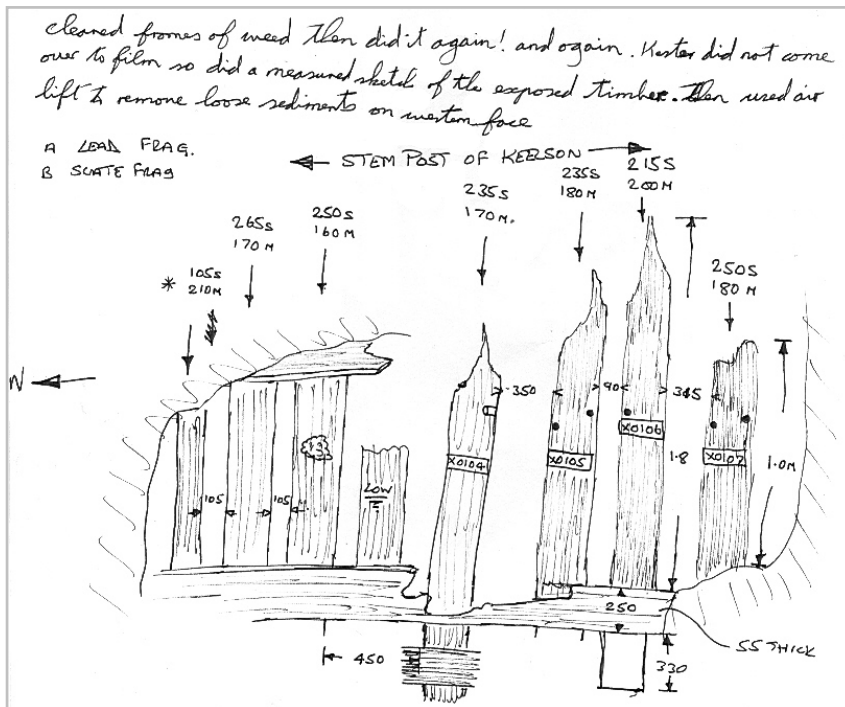 cleaned frames of weed then did it again! and again. Kester did not come
over to film so did a measured sketch of the exposed timber. Then used air
lift to remove loose sediments on western face
A LEAD FRAG.
B SLATE FRAG
STEM POST OF KEELSON
215S
200M
235S
180M
235S
170M.
250S
160M
265S
170M
* 105S
210M
250S
180M
N
350
90
345
X0106
X0104
X0105
X0107
1.8
1.0M
LOW
105
105
250
55 THICK
450
330